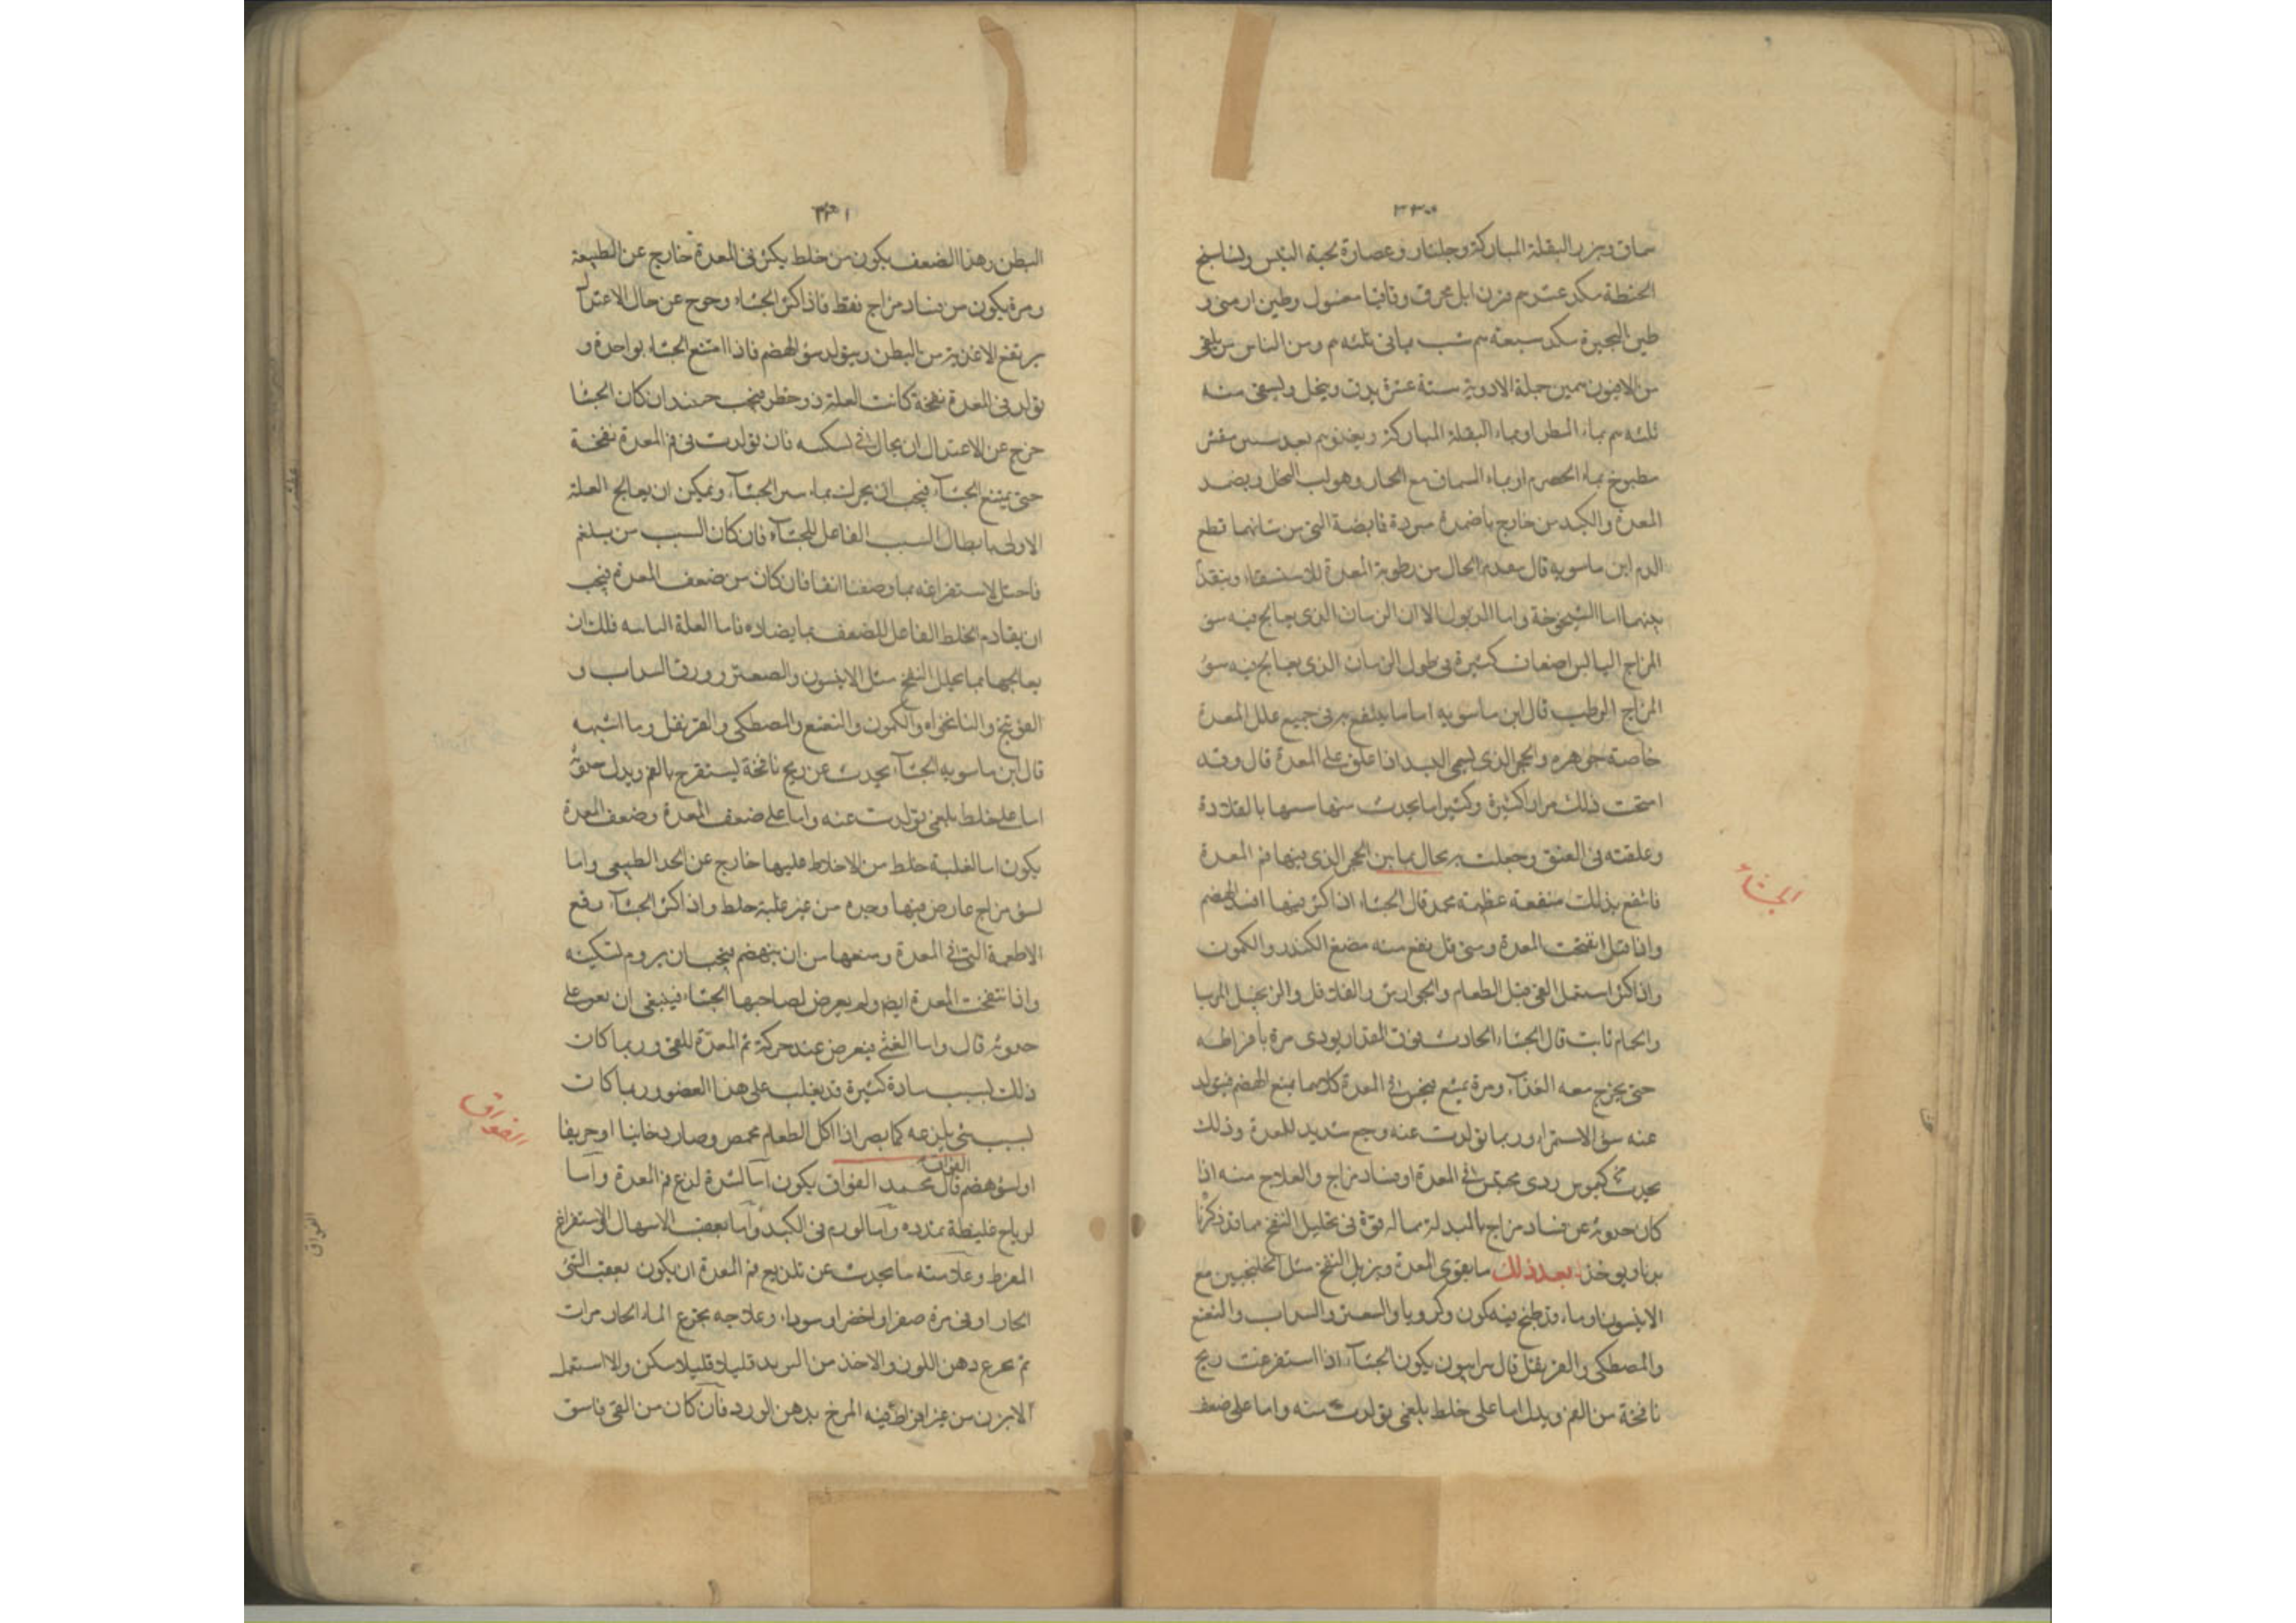 ٣٣٠
سماق وبزر البقلة المباركة وجلنار وعصارة لحية التيس
الحنطة مكد عشرم قرن ايل محرق وقاقيا مغسول وطين ارمنى و
طين البحيرة مكد سبعة م شب يمانى ثلثه م ومن الناس من يلقى
من الافيون جملة الادوية ستة عشرة يدق وينخل ويسقى منه
ثلثه م بماء المطر او بماء البقلة المباركة
مطبوخ بماء الحصرم او بماء السماق مع الجمار وهو لب النخل ويضمد
المعدة والكبد من خارج باضمدة مبردة قابضة التى من شانها قطع
الدم ابن ماسويه قال المعدة
بينهما اما الشيخوخة واما الذبول الا ان الزمان الذى يعالج فيه سؤ
المزاج اليابس اضعاف كثيرة فى طول الزمان الذى يعالج فيه سؤ
المزاج الرطب قال ابن ماسويه اما ما ينتفع به فى جميع علل المعدة
خاصة جوهره والحجر الذى يسمى اذا علق على المعدة قال وقد
امتحنت ذلك مرارا كثيرة وكثيرا ما يحدث منها بالقلادة
وعلقته فى العنق وجعلت بحال يماس الحجر الذى فيها فم المعدة
فانتفع بذلك منفعة عظيمة محمد قال الجشاء اذا كثر فيها افسد الهضم
واذا قل انتفخت المعدة ومتى قل نفع منه مضغ الكندر والكمون
واذا كثر استعمل القى قبل الطعام والجوارش الفلافل والزنجبيل المربا
والحمام ثابت قال الجشاء الحادث فوق المقدار يودى مرة بافراطه
حتى يخرج معه الغذاء ومرة يمنع فيحبس فى المعدة كلاهما يمنع الهضم فيولد
عنه سؤ الاستمراء وربما تولدت عنه وجع شديد للمعدة وذلك
يحدث كيموس ردى محتبس فى المعدة او فساد مزاج والعلاج منه اذا
كان حدوثه عن فساد مزاج بالمبدلة بما له قوة فى تحليل النفخ مما قد ذكرنا
بعد ذلك ما يقوى المعدة ويزيل النفخ مثل الخلنجبين مع
الانيسون او ماء قد طبخ فيه كمون وكرويا والسعتر والسداب والنعنع
والمصطكى والقرنفل قال سرابيون يكون الجشاء اذا استفرغت ريح
نافخة من الفم ويدل اما على خلط بلغمى تولدت منه واما على ضعف
الجشاء
٣٣١
البطن وهذا الضعف يكون من خلط يكثر فى المعدة خارج عن الطبيعة
ومرة يكون من فساد مزاج فقط فاذا كثر الجشاء وخرج عن حال الاعتدال
يرتفع الاغذية من البطن ويتولد سؤ الهضم فاذا امتنع الجشاء بواحدة و
تولد فى المعدة نفخة كانت العلة ذو خطر فيجب حينئذ ان كان الجشا
خرج عن الاعتدال ان يحال فى تسكينه فان تولدت فى فم المعدة نفخة
حتى يمتنع الجشاء فيجب ان يحرك بما الجشاء ويمكن ان يعالج العلة
الاولى بابطال السبب الفاعل للجشاء فان كان السبب من بلغم
لاستفراغه بما وصفنا انفا فان كان من ضعف المعدة فيجب
ان يقاوم الخلط الفاعل للضعف بما يضاده فاما العلة فلك ان
يعالجها بما يحلل النفخ مثل الانيسون والصعتر وورق السداب و
الفوتنج والنانخواه والكمون والنعنع والمصطكى والقرنفل وما اشبهه
قال ابن ماسويه الجشاء يحدث عن ريح نافخة يستفرغ بالفم ويدل حدوثه
اما على خلط بلغمى تولدت عنه واما على ضعف المعدة وضعف المعدة
يكون اما لغلبة خلط من الاخلاط عليها خارج عن الحد الطبيعى واما
لسؤ مزاج عارض فيها وحده من غير غلبة خلط واذا كثر الجشاء رفع
الاطعمة التى فى المعدة ومنعها من ان ينهضم فيجب ان يروم تسكينه
واذا انتفخت المعدة ايضا ولم يعرض لصاحبها الجشاء فينبغى ان يعون على
حدوثه قال واما الغثى فيعرض عند حركة فم المعدة للقى وربما كان
ذلك بسبب مادة كثيرة قد يغلب على هذا العضو وربما كان
بسبب شى يلذعه كما يصير اذا اكل الطعام محمص وصار دخانيا او حريفا
الفواق
او لسؤ هضم قال محمد الفواق يكون اما لشدة لذع فم المعدة واما
لرياح غليظة ممددة واما لورم فى الكبد واما بعقب الاسهال والاستفراغ
المفرط وعلامته ما يحدث عن تلذيع فم المعدة ان يكون بعقب القى
الحار او قى مرة صفرا او اخضر او سوداء وعلاجه بجرع الماء الحار مرات
ثم بجرع دهن اللوز والاخذ من قليلا قليلا سكن والا استعمل
الابزن من غير افراط فيه المرخ بدهن الورد فان كان من القى فاسق
الفواق
الفواق